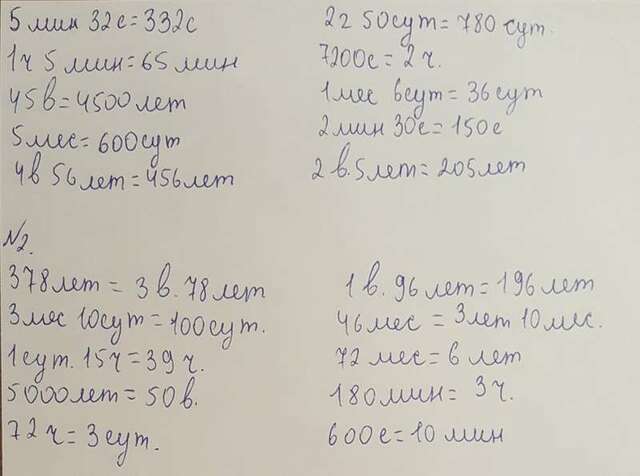 5 мин 32с = 332с
1ч 5 мин = 65 мин
45в = 4500лет
5мес = 600сут
4в 56лет = 456лет
2г 50сут = 780 сут.
7200с = 2 ч.
1мес 6сут = 36сут
2мин 30с = 150с
2 в. 5лет = 205лет
№2.
378лет = 3 в. 78лет
3мес 10сут = 100сут.
1сут. 15ч = 39 ч.
5000лет = 50в.
72ч = 3сут.
1 в. 96лет = 196лет
46мес = 3лет 10мес.
72 мес = 6 лет
180мин = 3ч.
600с = 10 мин